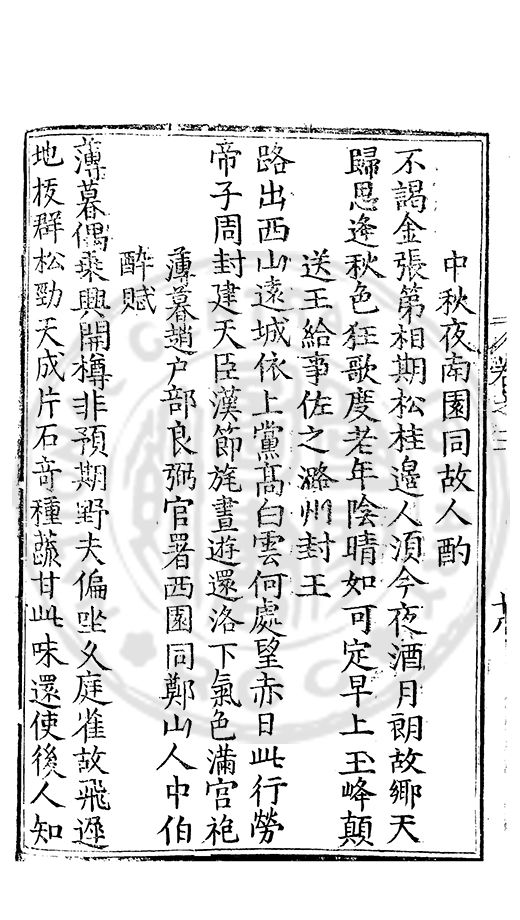 中秋夜南園同故人酌
不謁金張第相期松桂邉人須今夜酒月朗故鄉天
歸思逢秋色狂歌度老年陰晴如可定早上玉峰顛
送王給事佐之潞州封王
路出西山遠城依上黨髙白雲何處望赤日此行勞
帝子周封建天臣漢節旄晝遊還洛下氣色滿宫袍
薄暮趙户部良弼官署西園同鄭山人中伯
醉賦
薄暮偶乘興開樽非預期野夫偏坐久庭雀故飛遲
地枝群松勁天成片石竒種蔬甘此味還使後人知
卷之三